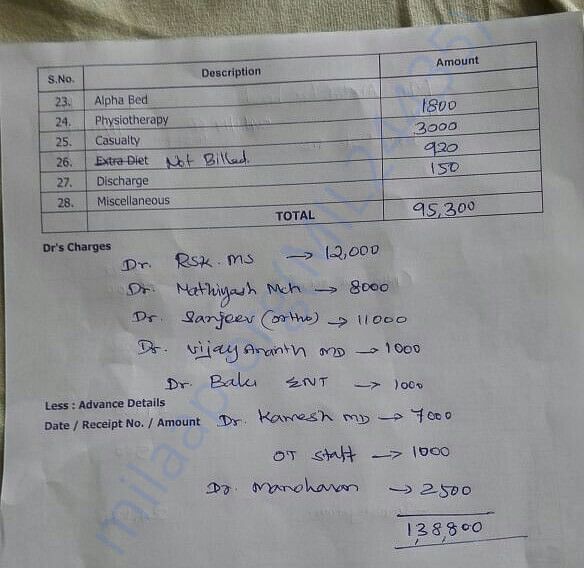 S.No. Description Amount
23. Alpha Bed
24. Physiotherapy 1800
25. Casualty 3000
26. Extra Diet Not Billed. 920
27. Discharge 150
28. Miscellaneous
TOTAL 95,300
Dr's Charges
Dr. RSK. MS → 12,000
Dr. Mathiyash Mch → 8000
Dr. Sanjeev (ortho) → 11000
Dr. Vijay Ananth MD → 1000
Dr. Balu ENT → 1000
Less : Advance Details
Date / Receipt No. / Amount Dr. Kamesh MD → 7000
OT Staff → 1000
Dr. Manoharan → 2500
138,800